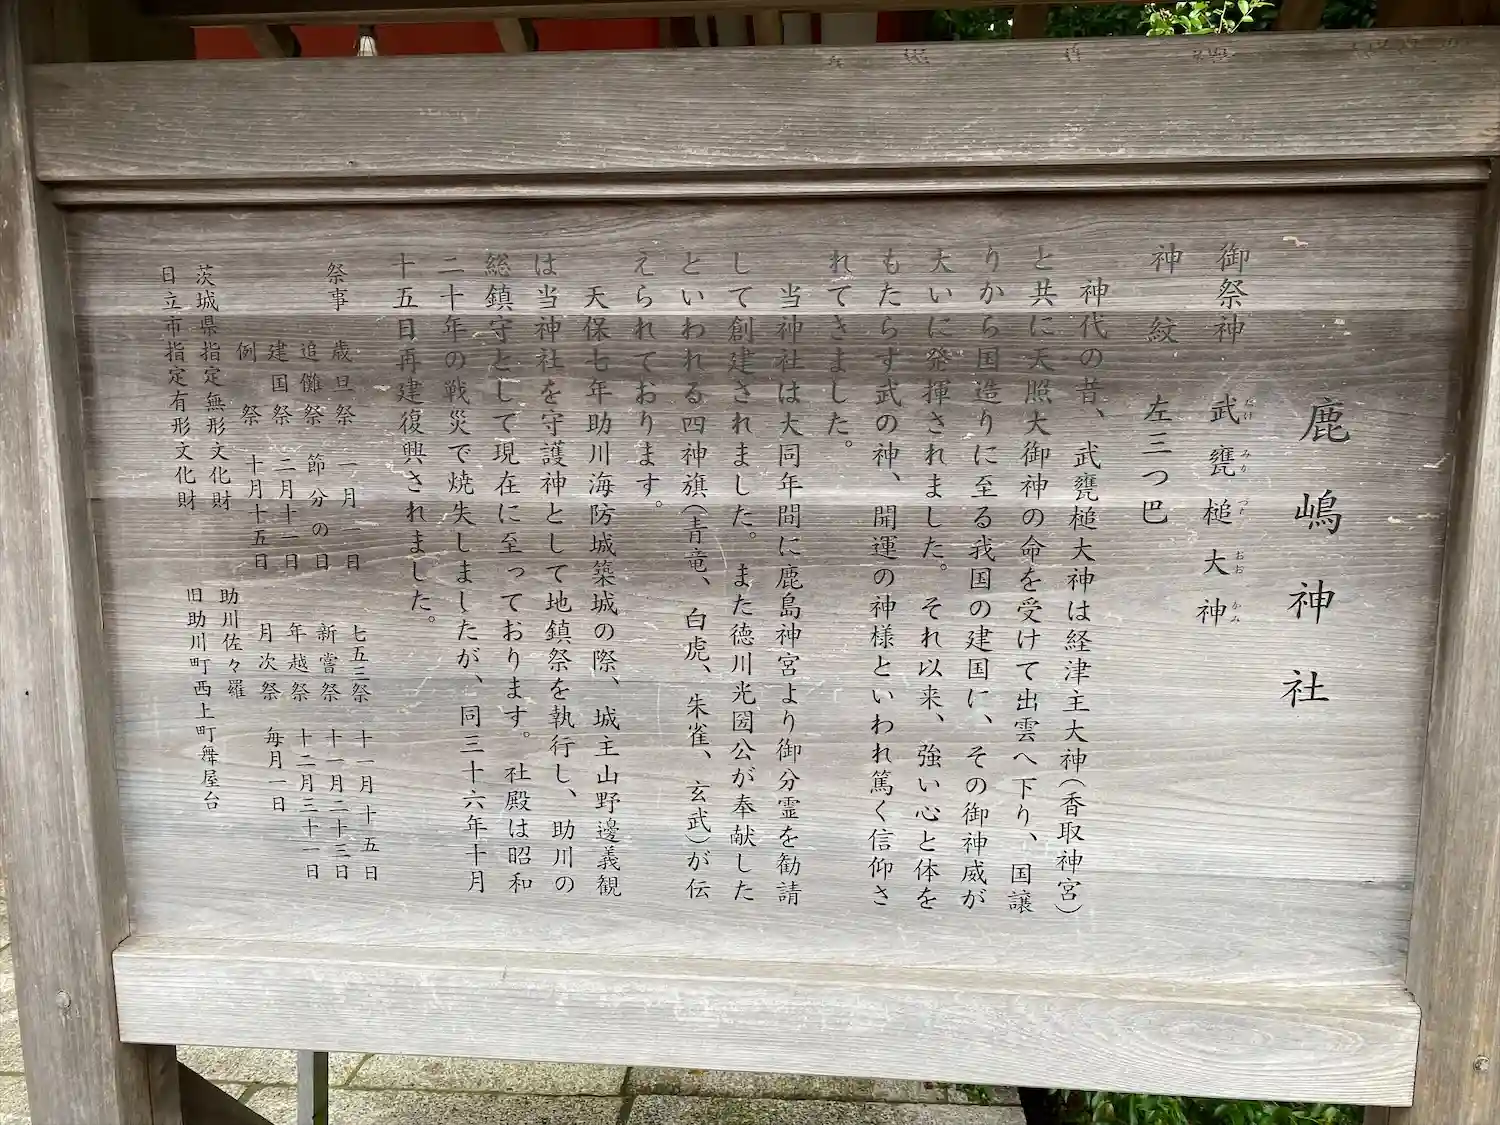 鹿嶋神社
御祭神 武甕槌大神
たけ みか づち おお かみ
神紋 左三つ巴
神代の昔、武甕槌大神は経津主大神(香取神宮)
と共に天照大御神の命を受けて出雲へ下り、国譲
りから国造りに至る我国の建国に、その御神威が
大いに発揮されました。それ以来、強い心と体を
もたらす武の神、開運の神様といわれ篤く信仰さ
れてきました。
当神社は大同年間に鹿島神宮より御分霊を勧請
して創建されました。また徳川光圀公が奉献した
といわれる四神旗(青竜、白虎、朱雀、玄武)が伝
えられております。
天保七年助川海防城築城の際、城主山野邊義観
は当神社を守護神として地鎮祭を執行し、助川の
総鎮守として現在に至っております。社殿は昭和
二十年の戦災で焼失しましたが、同三十六年十月
十五日再建復興されました。
祭事 歳旦祭 一月一日 七五三祭 十一月十五日
追儺祭 節分の日 新嘗祭 十一月二十三日
建国祭 二月十一日 年越祭 十二月三十一日
例祭 十月十五日 月次祭 毎月一日
茨城県指定無形文化財 助川佐々羅
日立市指定有形文化財 旧助川町西上町舞屋台